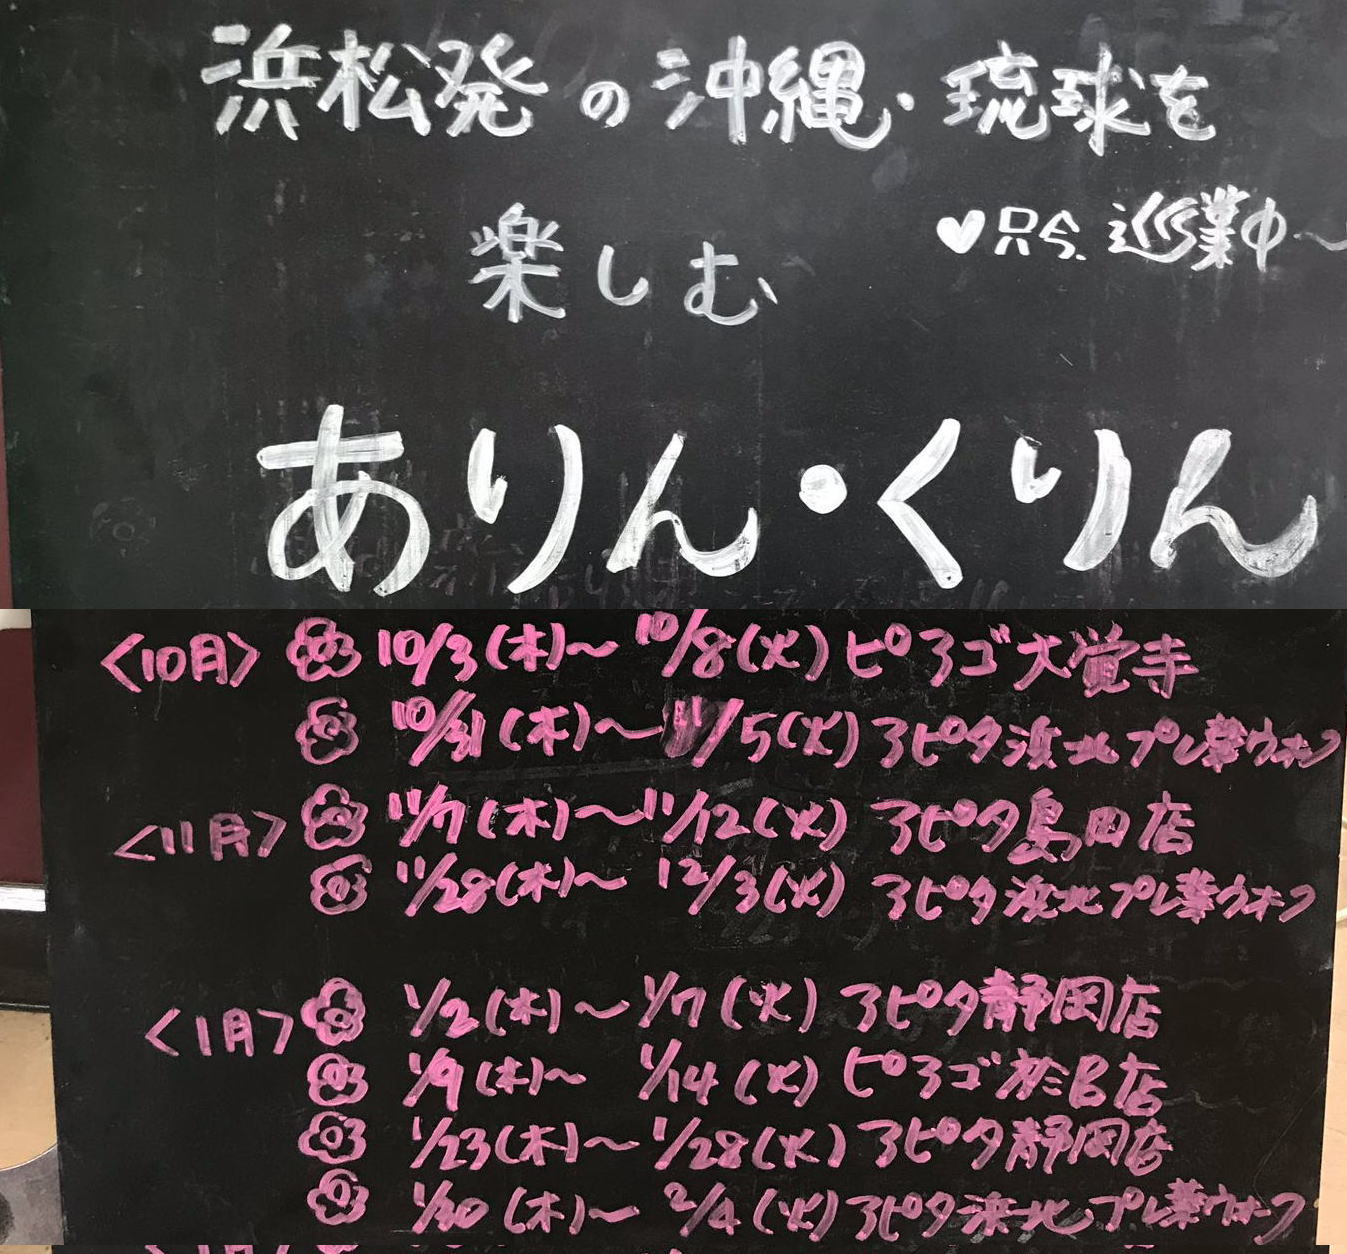 浜松発の沖縄・琉球を
楽しむ
♥只今、巡業中～
ありん・くりん
<10月> 10/3(木)～10/8(火) ピアゴ大覚寺
10/31(木)～11/5(火) アピタ浜北プレ葉ウォーク
<11月> 11/7(木)～11/12(火) アピタ島田店
11/28(木)～12/3(火) アピタ浜北プレ葉ウォーク
<1月> 1/2(木)～1/7(火) アピタ静岡店
1/9(木)～1/14(火) ピアゴ 店
1/23(木)～1/28(火) アピタ静岡店
1/30(木)～2/4(火) アピタ浜北プレ葉ウォーク